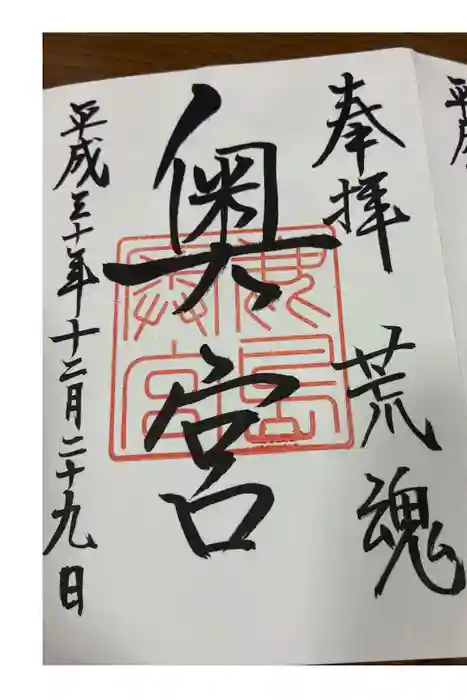 奉拝 荒魂
奥宮
鹿島奥宮
平成三十年十二月二十九日
平成